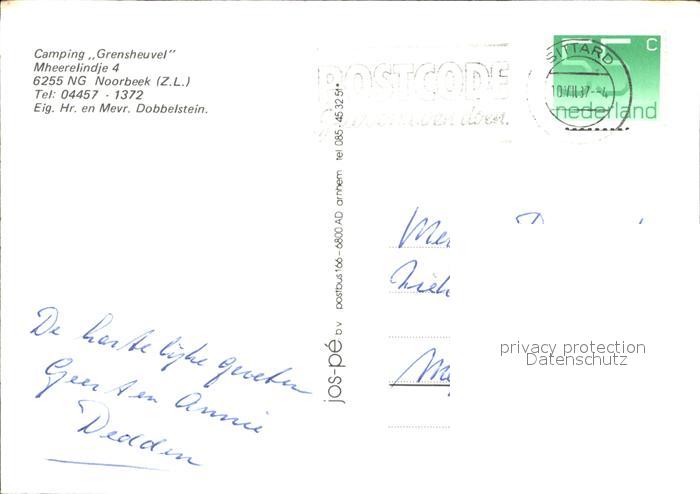 Camping „Grensheuvel"
Mheerelindje 4
6255 NG Noorbeek (Z.L.)
Tel: 04457 - 1372
Eig. Hr. en Mevr. Dobbelstein.
POSTCODE
SITTARD
10.VII.87.-4
75 C
nederland
jos-pé b.v. postbus 166 - 6800 AD arnhem tel 085 - 45 32 81*
De hartelijke groeten
Geert en Annie
Dedden
privacy protection
Datenschutz